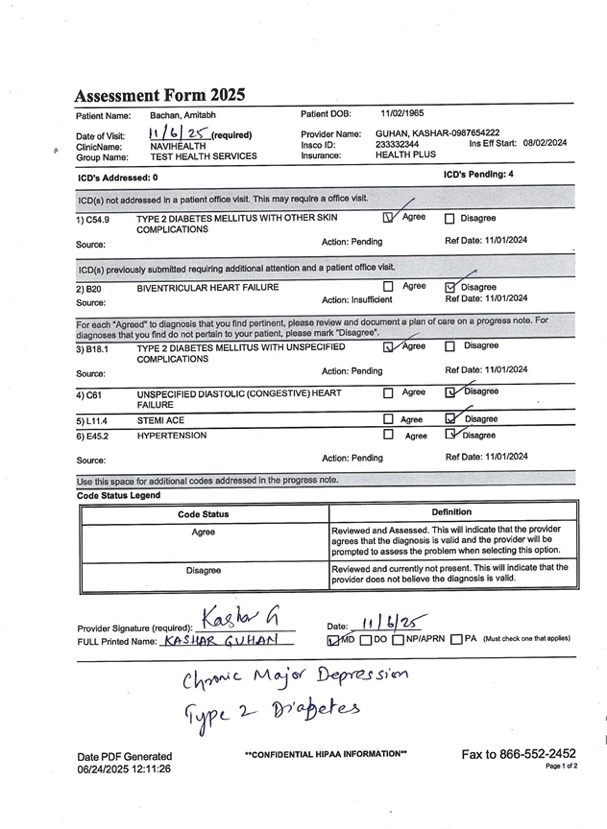 Assessment Form 2025
Patient Name: Bachan, Amitabh Patient DOB: 11/02/1965
Date of Visit: 11/6/25 (required) Provider Name: GUHAN, KASHAR-0987654222
ClinicName: NAVIHEALTH Insco ID: 233332344 Ins Eff Start: 08/02/2024
Group Name: TEST HEALTH SERVICES Insurance: HEALTH PLUS
ICD's Addressed: 0 ICD's Pending: 4
ICD(s) not addressed in a patient office visit. This may require a office visit.
1) C54.9 TYPE 2 DIABETES MELLITUS WITH OTHER SKIN Agree Disagree
COMPLICATIONS
Source: Action: Pending Ref Date: 11/01/2024
ICD(s) previously submitted requiring additional attention and a patient office visit.
2) B20 BIVENTRICULAR HEART FAILURE Agree Disagree
Source: Action: Insufficient Ref Date: 11/01/2024
For each "Agreed" to diagnosis that you find pertinent, please review and document a plan of care on a progress note. For
diagnoses that you find do not pertain to your patient, please mark "Disagree".
3) B18.1 TYPE 2 DIABETES MELLITUS WITH UNSPECIFIED Agree Disagree
COMPLICATIONS
Source: Action: Pending Ref Date: 11/01/2024
4) C61 UNSPECIFIED DIASTOLIC (CONGESTIVE) HEART Agree Disagree
FAILURE
5) L11.4 STEMI ACE Agree Disagree
6) E45.2 HYPERTENSION Agree Disagree
Source: Action: Pending Ref Date: 11/01/2024
Use this space for additional codes addressed in the progress note.
Code Status Legend
Code Status Definition
Agree Reviewed and Assessed. This will indicate that the provider
agrees that the diagnosis is valid and the provider will be
prompted to assess the problem when selecting this option.
Disagree Reviewed and currently not present. This will indicate that the
provider does not believe the diagnosis is valid.
Provider Signature (required): Kashar G Date: 11/6/25
FULL Printed Name: KASHAR GUHAN MD DO NP/APRN PA (Must check one that applies)
Chronic Major Depression
Type 2 Diabetes
Date PDF Generated **CONFIDENTIAL HIPAA INFORMATION** Fax to 866-552-2452
06/24/2025 12:11:26 Page 1 of 2